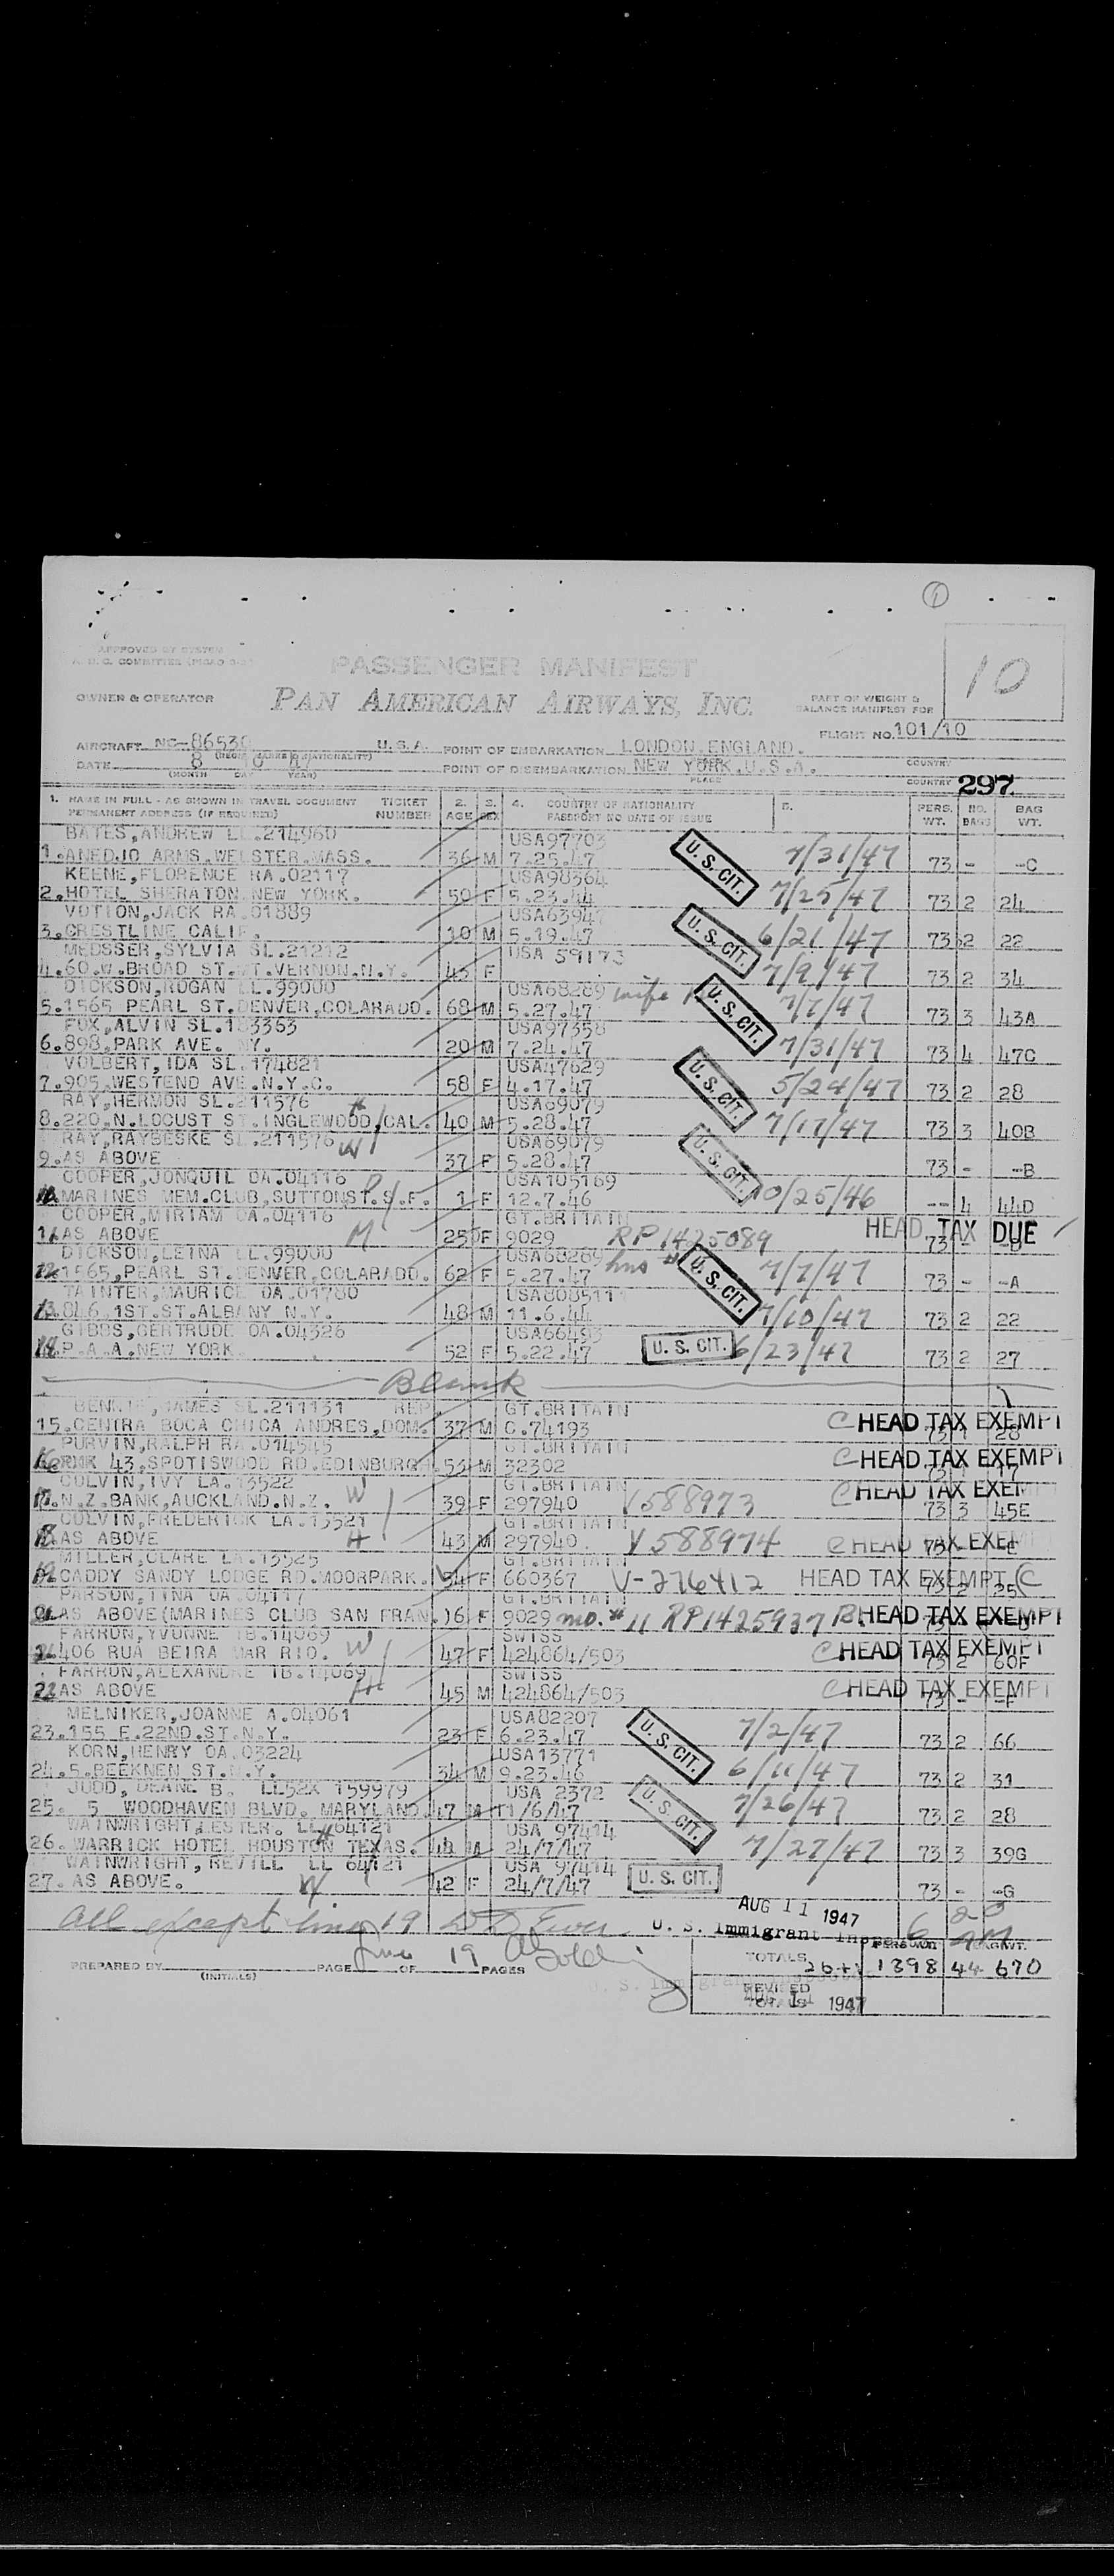 1
APPROVED BY SYSTEM
PASSENGER MANIFEST
10
OWNER & OPERATOR
PAN AMERICAN AIRWAYS, INC.
PART OF WEIGHT &
BALANCE MANIFEST FOR
FLIGHT NO. 101/10
AIRCRAFT NC-86530 U.S.A. POINT OF EMBARKATION LONDON, ENGLAND. COUNTRY
DATE 8 POINT OF DISEMBARKATION NEW YORK, U.S.A. COUNTRY
(MONTH DAY YEAR) PLACE 297
1. NAME IN FULL - AS SHOWN IN TRAVEL DOCUMENT TICKET 2. 3. 4. COUNTRY OF NATIONALITY 5. PERS. NO. BAG
PERMANENT ADDRESS (IF REQUIRED) NUMBER AGE SEX PASSPORT NO DATE OF ISSUE WT. BAGS WT.
BATES, ANDREW LL.214960 USA97703
1. ANEDJO ARMS. WEBSTER. MASS. 36 M 7.25.47 U. S. CIT. 7/31/47 73 - -C
KEENE, FLORENCE RA.02117 USA98364
2. HOTEL SHERATON NEW YORK. 50 F 5.23.44 7/25/47 73 2 24
VOTION, JACK RA.01889 USA63947
3. CRESTLINE CALIF. 10 M 5.19.47 U. S. CIT. 6/21/47 73 2 22
MEUSSER, SYLVIA SL.21212 USA 59173
4. 60.W.BROAD ST.MT.VERNON.N.Y. 45 F 7/9/47 73 2 34
DICKSON, ROGAN LL.99000 USA68269 wife
5. 1565 PEARL ST.DENVER,COLARADO. 68 M 5.27.47 U. S. CIT. 7/7/47 73 3 43A
FOX, ALVIN SL.183363 USA97358
6. 898, PARK AVE. NY. 20 M 7.24.47 7/31/47 73 4 47C
VOLBERT, IDA SL.174821 USA47629
7. 905.WESTEND AVE.N.Y.C. 58 F 4.17.47 U. S. CIT. 5/24/47 73 2 28
RAY, HERMON SL.211576 H USA69079
8. 220.N.LOCUST ST.INGLEWOOD,CAL. 40 M 5.28.47 7/17/47 73 3 40B
RAY, RAYBESKE SL.211576 W USA69079
9. AS ABOVE 37 F 5.28.47 U. S. CIT. 73 - -B
COOPER, JONQUIL OA.04116 USA105169
10. MARINES MEM.CLUB, SUTTONST.S.F. 1 F 12.7.46 10/25/46 -- 4 44D
COOPER, MIRIAM OA.04116 GT.BRITAIN HEAD TAX DUE
11. AS ABOVE M 25 F 9029 RP 1425089 73 - -D
DICKSON, LEINA LL.99000 USA68269 hus
12. 1565, PEARL ST.DENVER,COLARADO. 62 F 5.27.47 U. S. CIT. 7/7/47 73 - -A
TAINTER, MAURICE OA.01780 USA8085111
13. 846.1ST.ST.ALBANY N.Y. 48 M 11.6.44 7/10/47 73 2 22
GIBBS, GERTRUDE OA.04326 USA66493
14. P.A.A.NEW YORK. 52 F 5.22.47 U. S. CIT. 6/23/47 73 2 27
Blank
JAMES SL.211131 REP. GT.BRITAIN
15. CENTRA BOCA CHICA ANDRES,DOM. 37 M C.74193 C HEAD TAX EXEMPT 73 1 28
PURVIN, RALPH RA.014545 GT.BRITAIN
16. 43, SPOTISWOOD RD.EDINBURGH. 53 M 32302 C HEAD TAX EXEMPT 73 1 17
COLVIN, IVY LA.13522 GT.BRITAIN
17. N.Z.BANK, AUCKLAND.N.Z. W 39 F 297940 V588973 C HEAD TAX EXEM 73 3 45E
COLVIN, FREDERICK LA.13521 GT.BRITAIN
18. AS ABOVE H 43 M 297940. V588974 C HEAD TAX EXEM 73 - -E
MILLER, CLARE LA.13525 GT.BRITAIN
19. CADDY SANDY LODGE RD.MOORPARK. 54 F 660367 V-276412 HEAD TAX EXEMPT C 73 2 25
PARSON, TINA OA.04117 GT.BRITAIN
AS ABOVE(MARINES CLUB SAN FRAN.)6 F 9029 mo. # 11 RP1425937 B HEAD TAX EXEMPT
FARRON, YVONNE TB.14069 SWISS
406 RUA BEIRA MAR RIO. W 47 F 424864/503 C HEAD TAX EXEMPT 73 2 60F
FARRON, ALEXANDRE TB.14069 SWISS
22. AS ABOVE H 45 M 424864/503 C HEAD TAX EXEMPT 73 - -F
MELNIKER, JOANNE A.04061 USA82207
23. 155.E.22ND.ST.N.Y. 23 F 6.23.47 U. S. CIT. 7/2/47 73 2 66
KORN, HENRY OA.03224 USA13771
24. 5.BEEKNEN ST.N.Y. 34 M 9.23.46 6/11/47 73 2 31
JUDD, DEANE B. LL52X 159979 USA 2372
25. 5 WOODHAVEN BLVD. MARYLAND. 47 M 11/6/47 U. S. CIT. 7/26/47 73 2 28
WAINWRIGHT, LESTER. LL 64121 H USA 97414
26. WARRICK HOTEL HOUSTON TEXAS. 44 M 24/7/47 7/27/47 73 3 39G
WAINWRIGHT, REVILL LL 64121 USA 97414
27. AS ABOVE. W 42 F 24/7/47 U. S. CIT. 73 - -G
AUG 11 1947
All except line 19
U. S. Immigrant Inspector
line 19
PREPARED BY (INITIALS) PAGE OF PAGES TOTALS 26+1 1898 44 670
REVISED TOTALS 1947